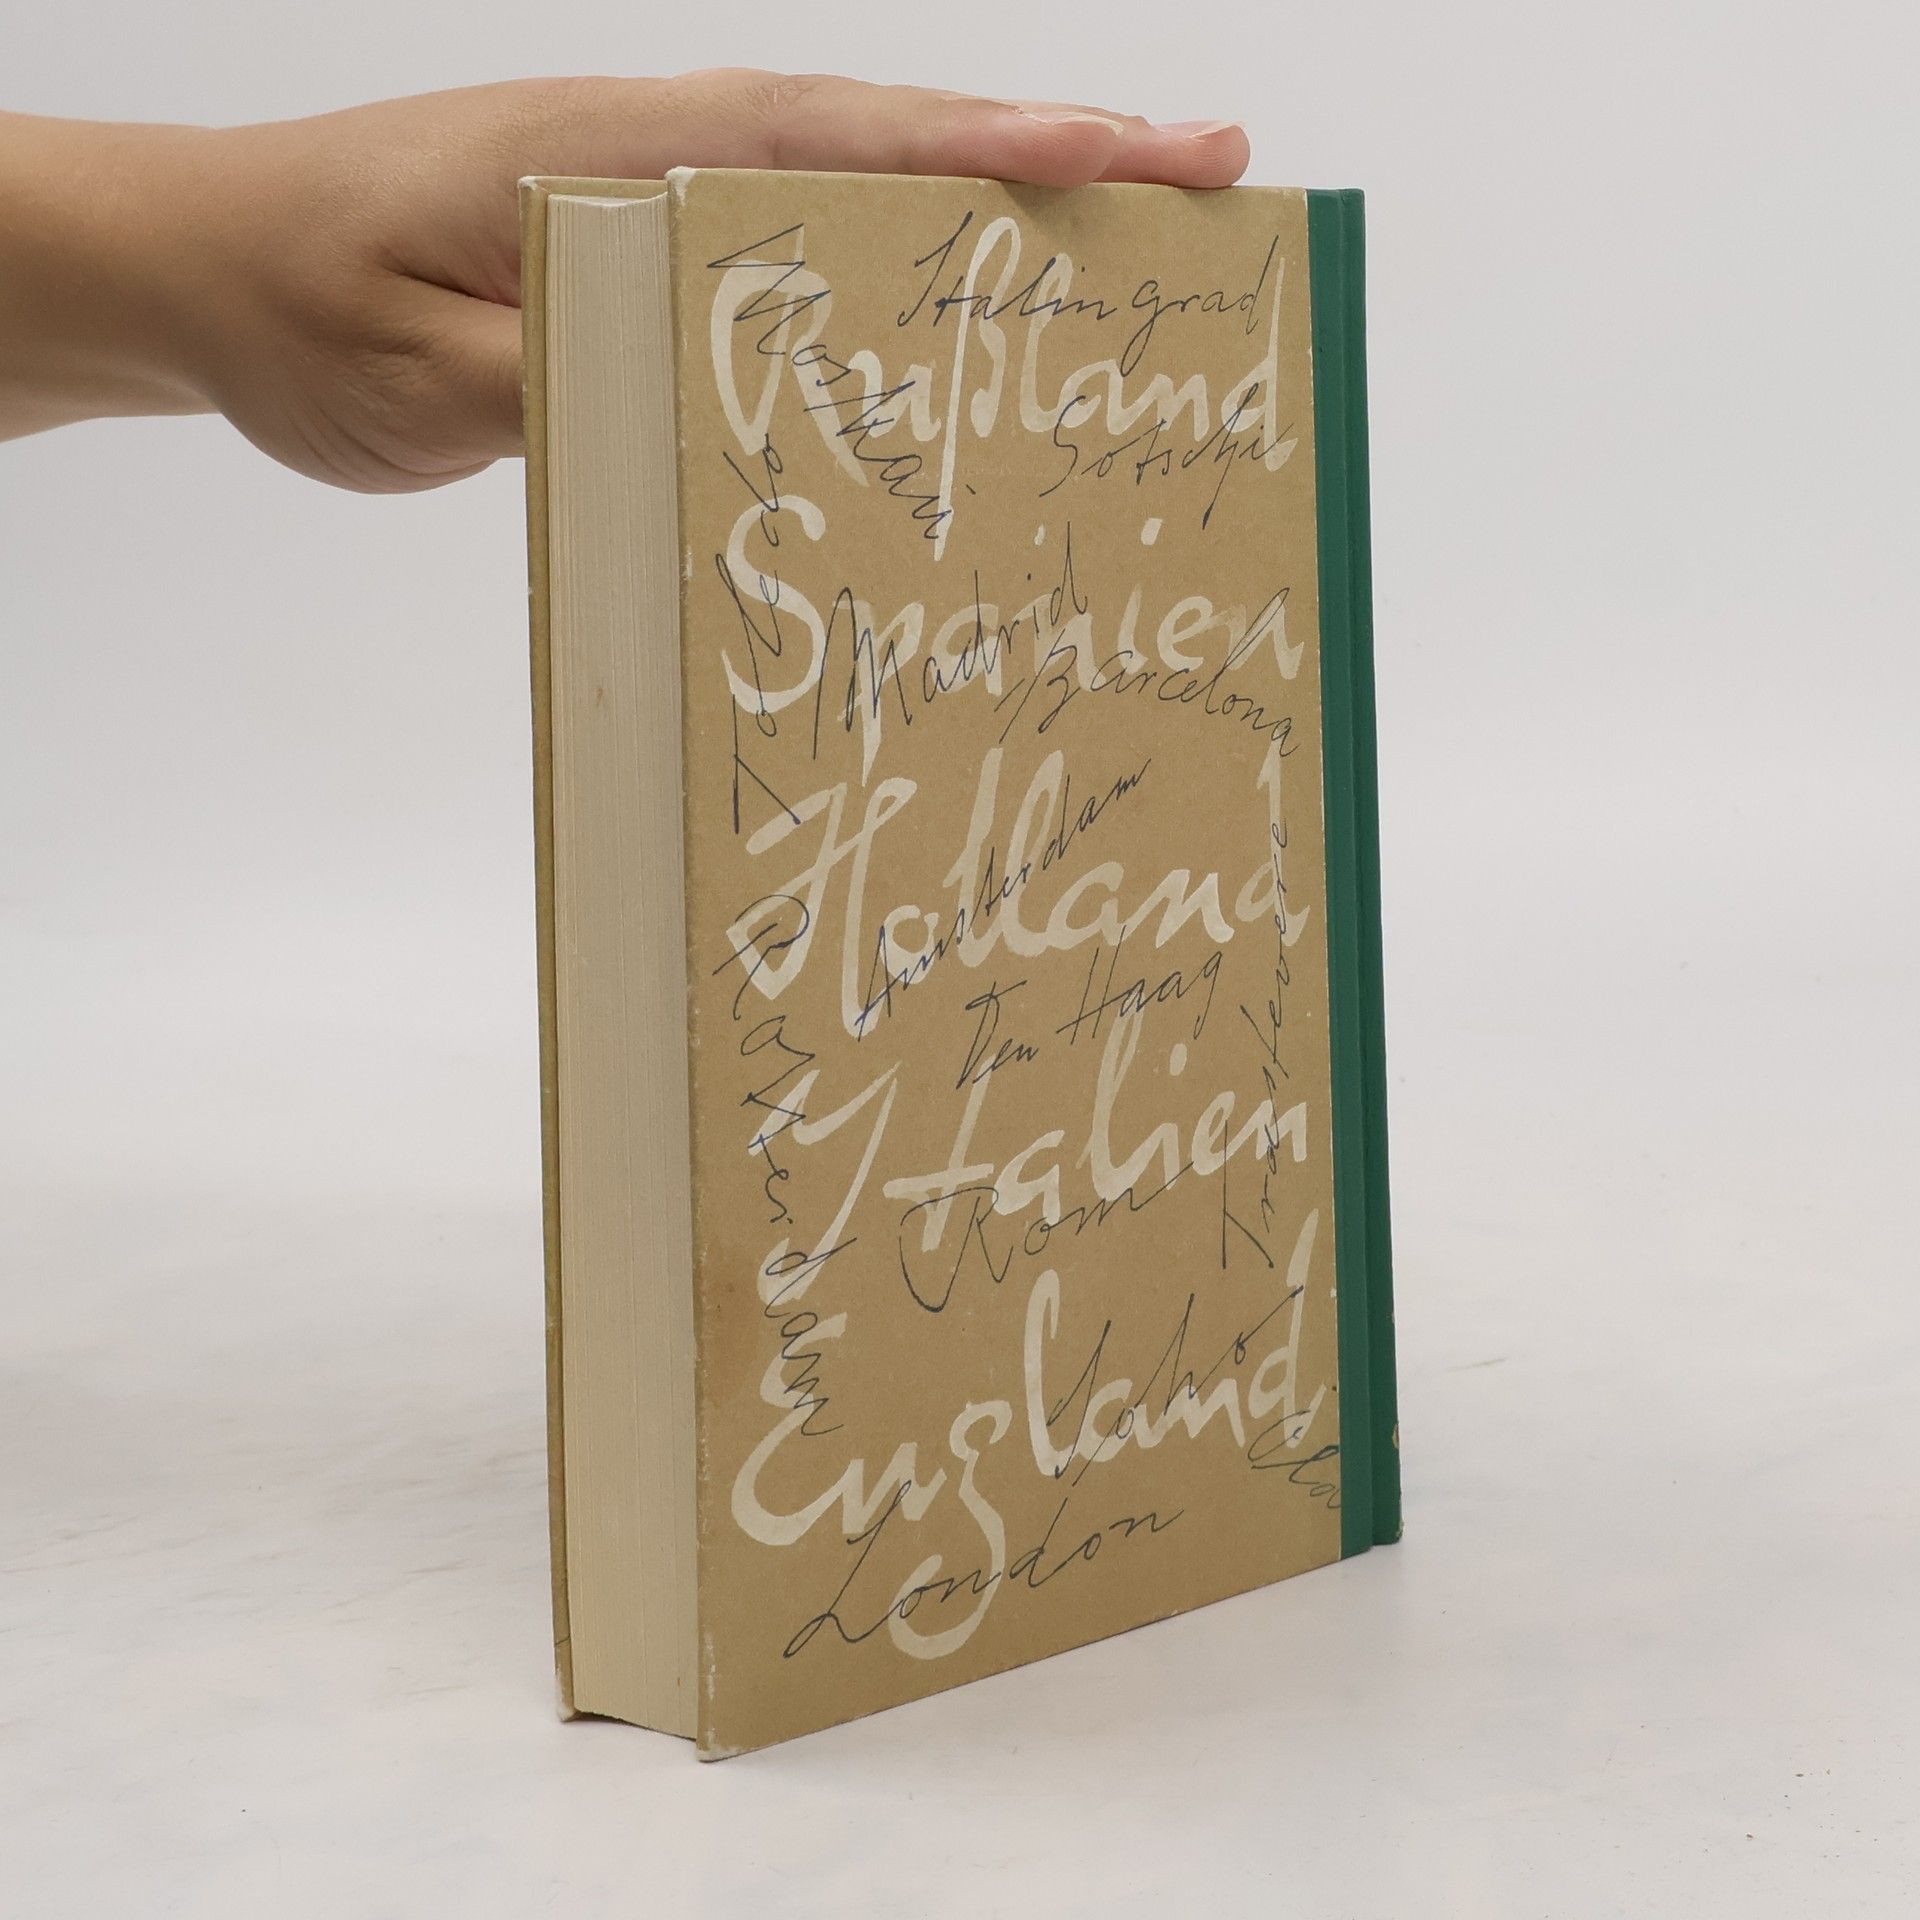 Stalingrad
Rußland
Moskau
Sotschi
Spanien
Toledo
Madrid
Barcelona
Holland
Amsterdam
Den Haag
Rotterdam
Trastevere
Italien
Rom
England
Soho
London